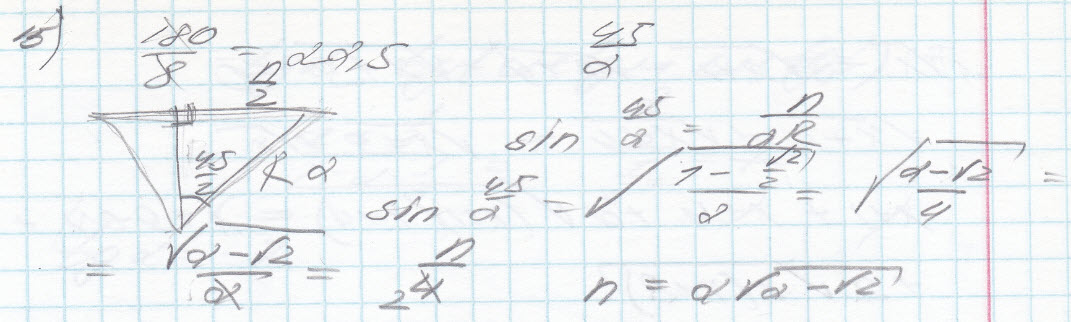 15)
180/8 = 22,5
45/2
n/2
45/2 R 2
sin 45/2 = n/2R
sin 45/2 = √((1 - √2/2)/2) = √((2-√2)/4) =
= √(2-√2)/2 = n/4 2
n = 2√(2-√2)